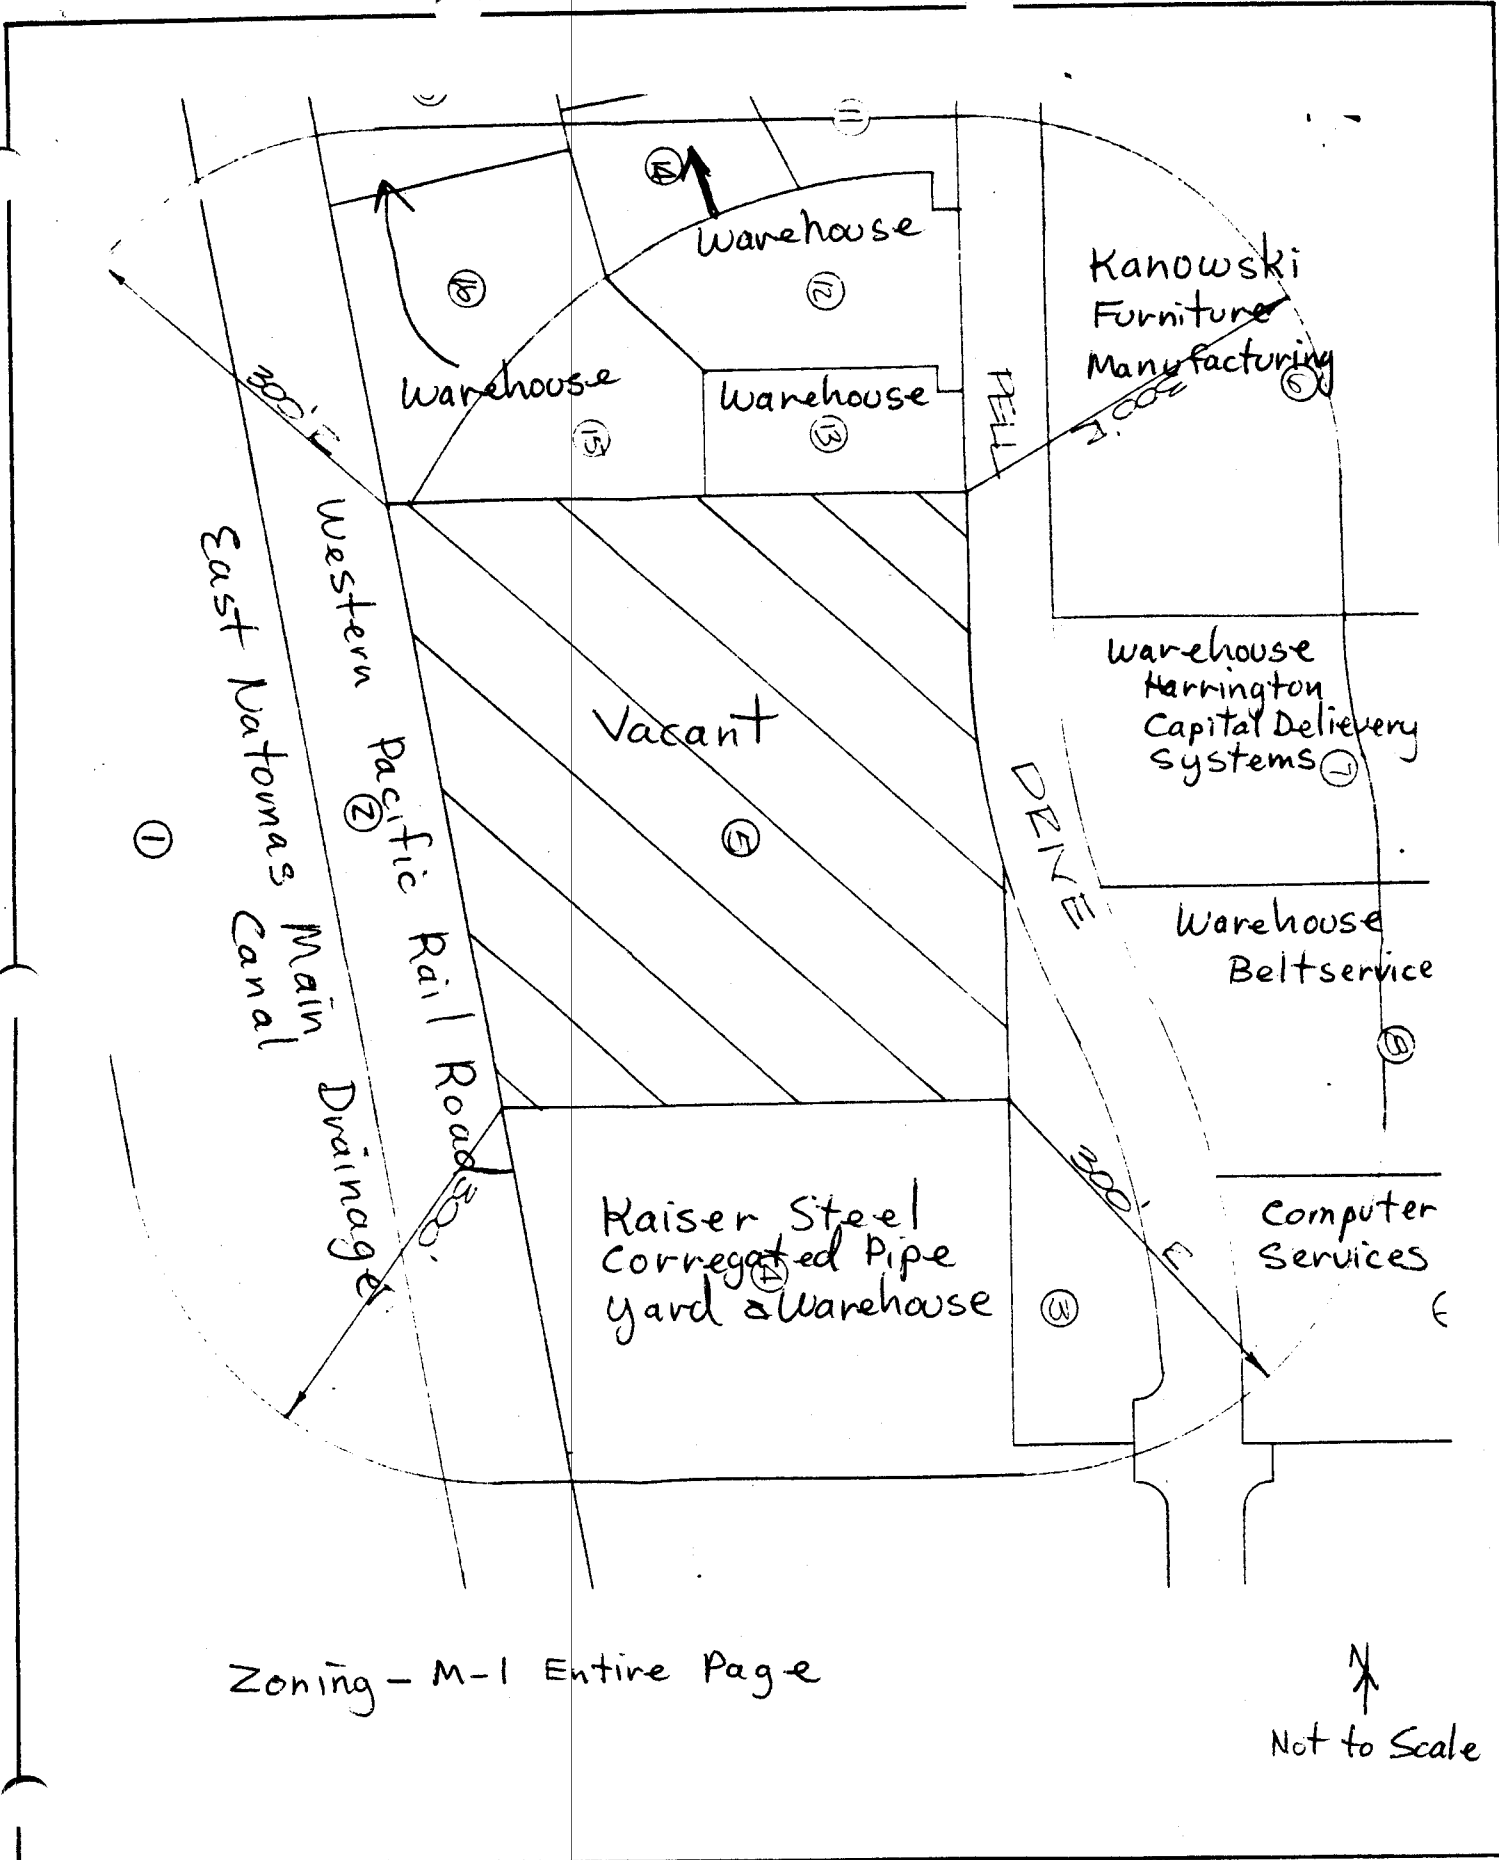 11
14
Warehouse
12
16
Kanowski
Furniture
Manufacturing
6
300'
300'
Warehouse
15
Warehouse
13
PELL
DRIVE
Western Pacific Rail Road
East Natomas Main Drainage
Canal
1
2
Vacant
5
Warehouse
Harrington
Capital Delievery
Systems
7
Warehouse
Beltservice
8
300'
300'
Kaiser Steel
Corregated Pipe
Yard & Warehouse
4
3
Computer
Services
Zoning - M-1 Entire Page
N
Not to Scale